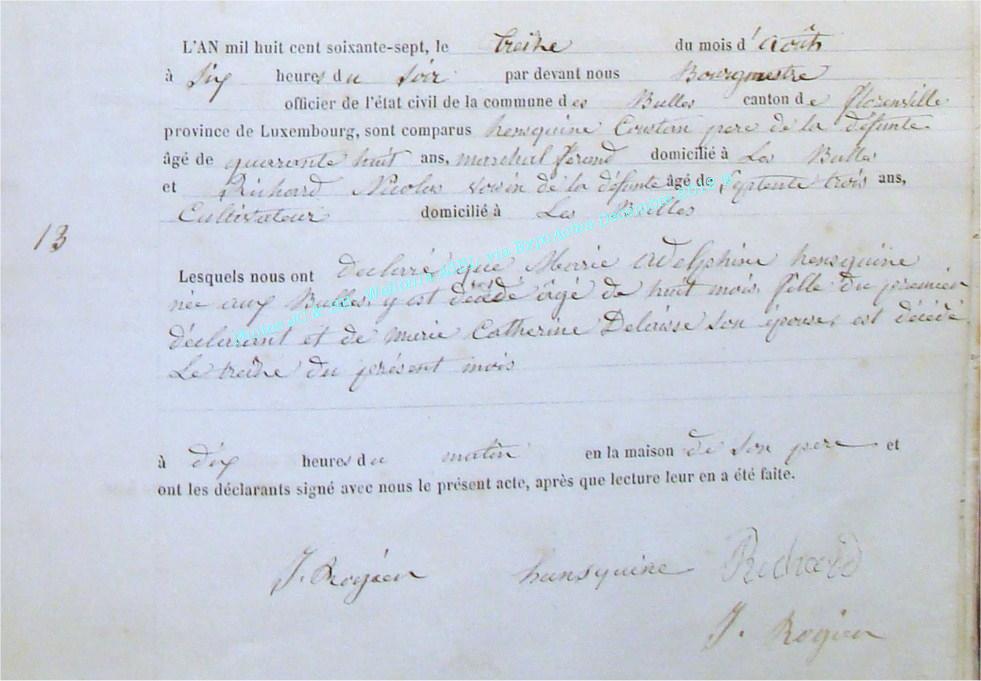 L'AN mil huit cent soixante-sept, le treize du mois d'Août
à Six heures du Soir par devant nous Bourgmestre
officier de l'état civil de la commune des Bulles canton de florenville
province de Luxembourg, sont comparus hensquine Constan pere de la défunte
âgé de quarante huit ans, marechal ferand domicilié à Les Bulles
et Richard Nicolas voisin de la défunte âgé de Septente trois ans,
Cultivateur domicilié à Les Bulles
13
Lesquels nous ont declaré que Marie Adelphine hensquine
née aux Bulles, y est décédé âgé de huit mois, fille du premier
déclarant et de marie Catherine Delaisse son épouse, est décédé
Le treize du présent mois
à dix heures du matin en la maison de son pere et
ont les déclarants signé avec nous le présent acte, après que lecture leur en a été faite.
J. Rogier hensquine Richard
J. Rogier